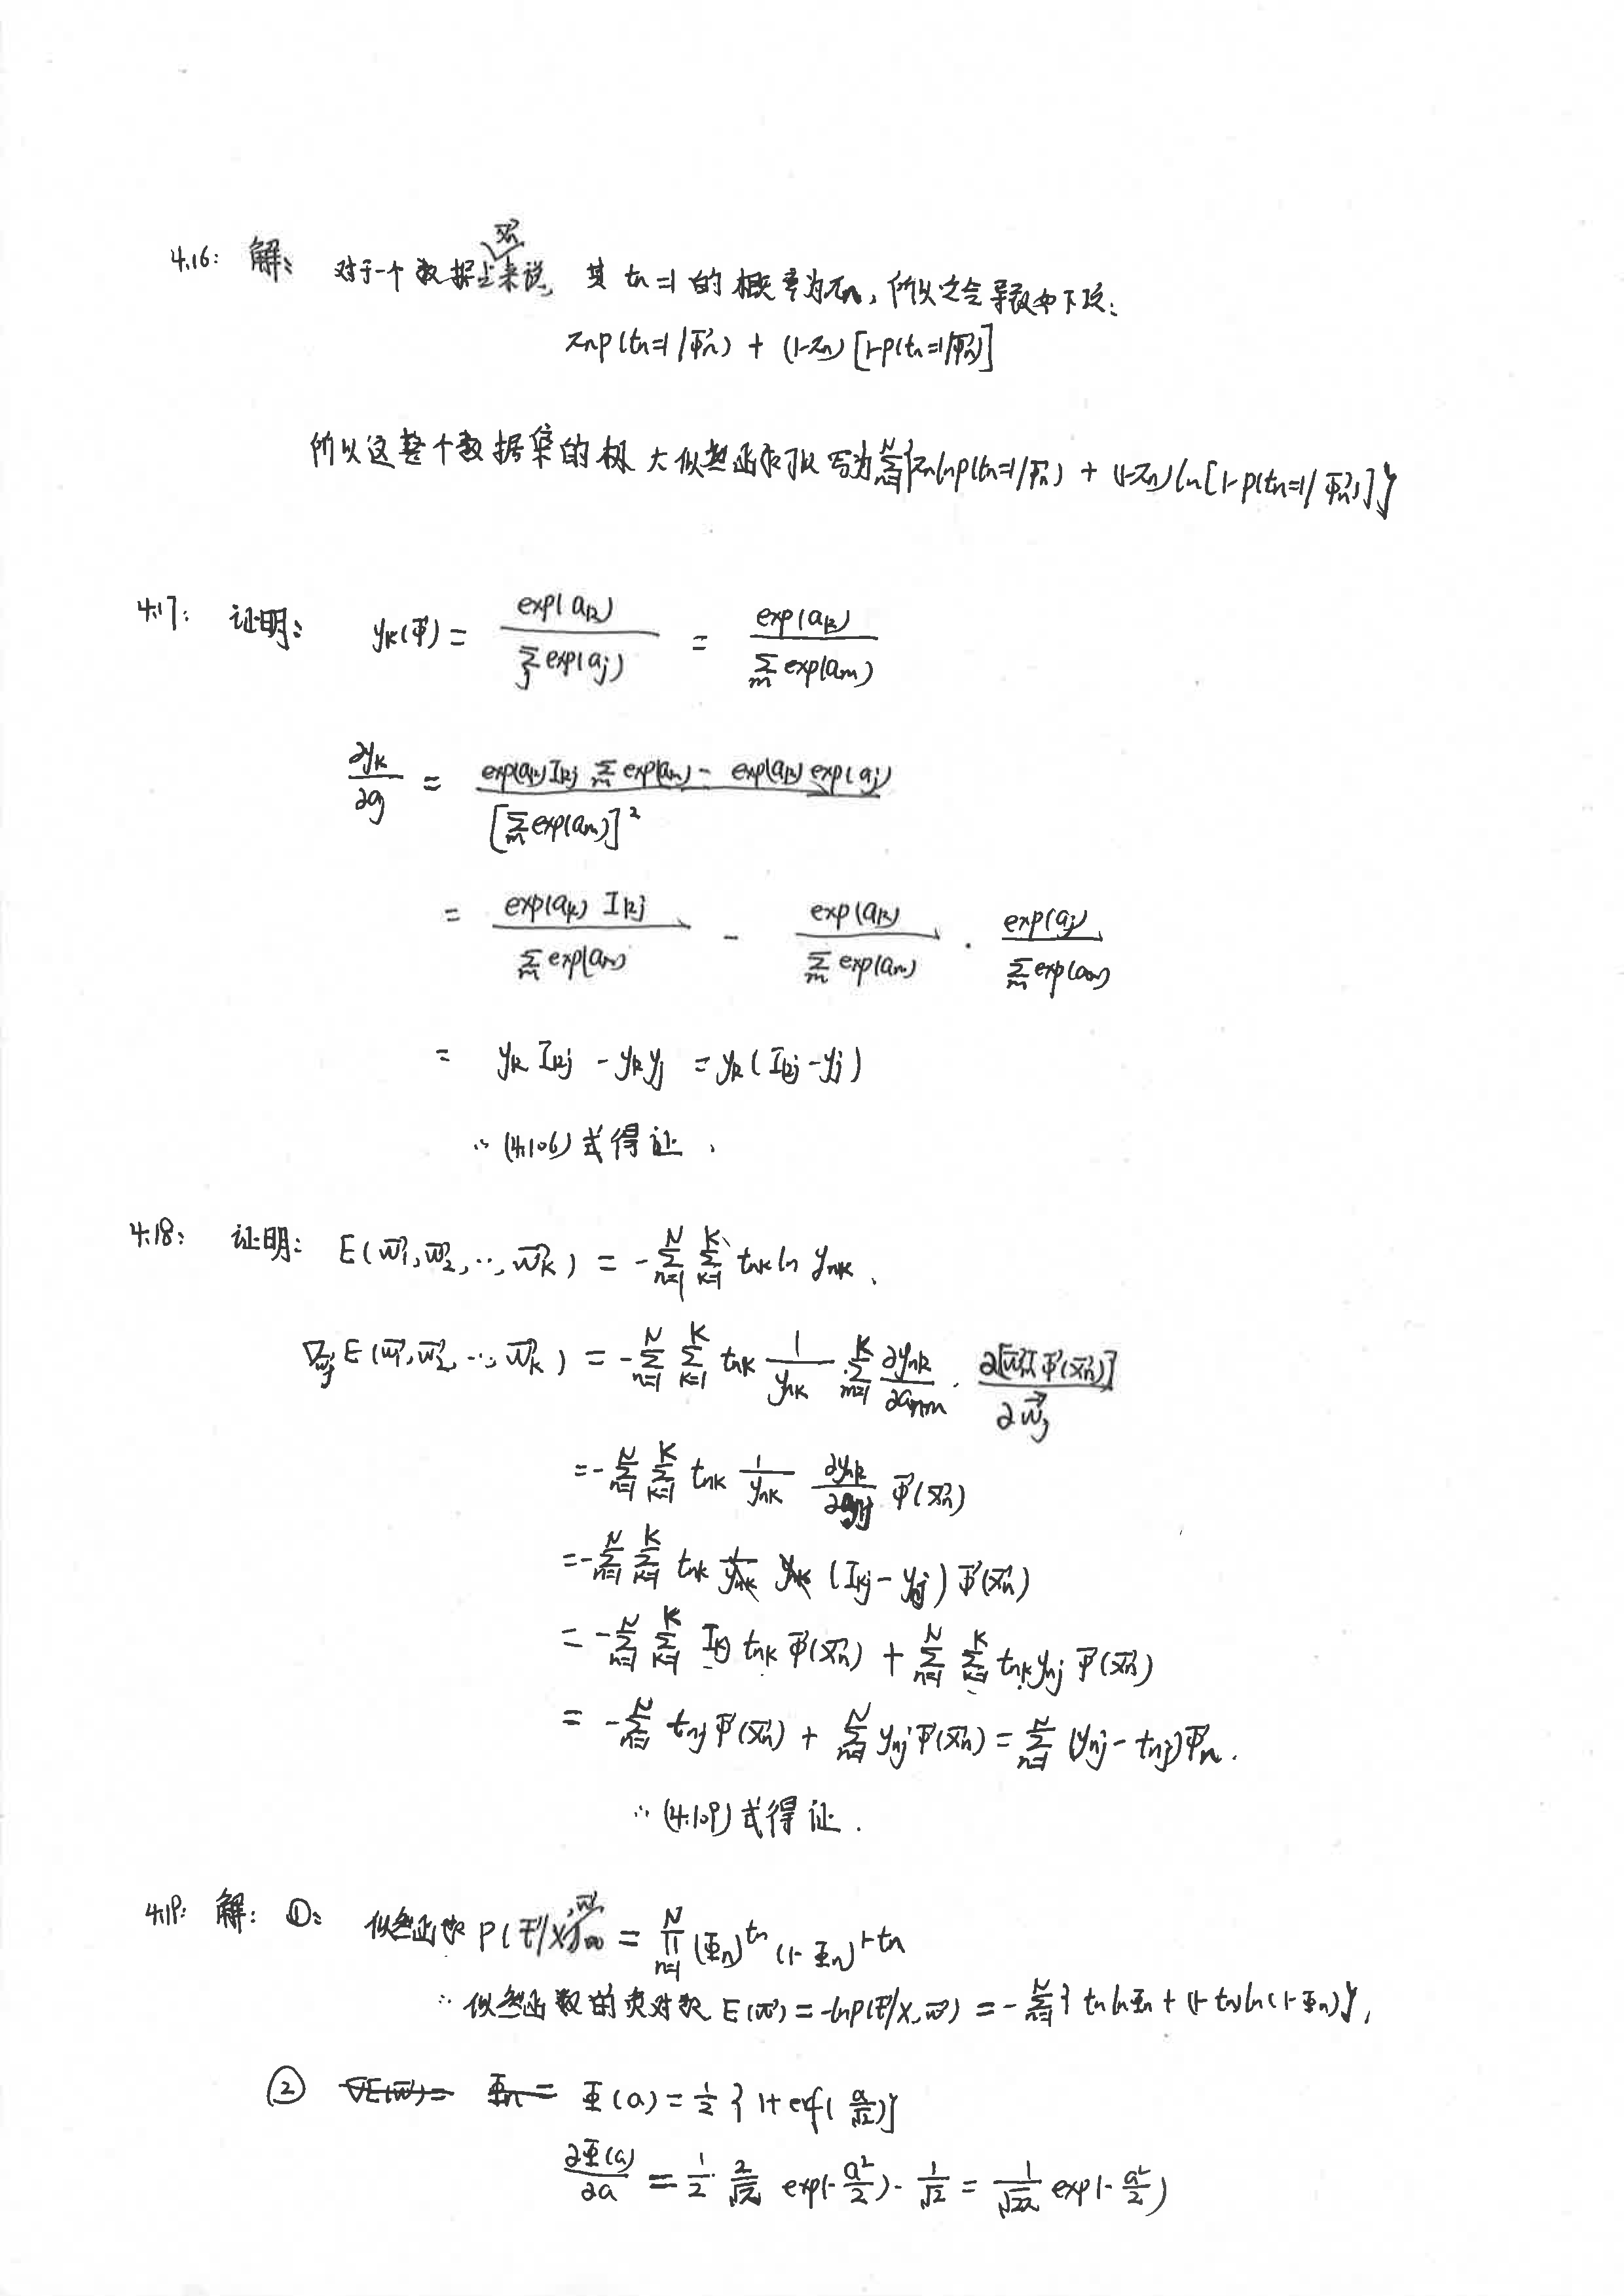 4.16: 解: 对于一个数据点 $\vec{x_n}$ 来说, 其 $t_n=1$ 的概率为 $\pi_n$, 所以它会导致如下项:
$\pi_n p(t_n=1/\vec{\Phi_n}) + (1-\pi_n)[1-p(t_n=1/\vec{\Phi_n})]$
所以这整个数据集的极大似然函数可以写为 $\sum_{n=1}^{N}\{\pi_n \ln p(t_n=1/\vec{\Phi_n}) + (1-\pi_n)\ln[1-p(t_n=1/\vec{\Phi_n})]\}$
4.17: 证明: $y_k(\vec{\Phi}) = \frac{\exp(a_k)}{\sum_j \exp(a_j)} = \frac{\exp(a_k)}{\sum_m \exp(a_m)}$
$\frac{\partial y_k}{\partial a_j} = \frac{\exp(a_k) I_{kj} \sum_m \exp(a_m) - \exp(a_k)\exp(a_j)}{[\sum_m \exp(a_m)]^2}$
$= \frac{\exp(a_k) I_{kj}}{\sum_m \exp(a_m)} - \frac{\exp(a_k)}{\sum_m \exp(a_m)} \cdot \frac{\exp(a_j)}{\sum_m \exp(a_m)}$
$= y_k I_{kj} - y_k y_j = y_k(I_{kj} - y_j)$
∴ (4.106) 式得证.
4.18: 证明: $E(\vec{w_1}, \vec{w_2}, \cdots, \vec{w_K}) = -\sum_{n=1}^{N}\sum_{k=1}^{K} t_{nk} \ln y_{nk}.$
$\nabla_{\vec{w_j}} E(\vec{w_1}, \vec{w_2}, \cdots, \vec{w_K}) = -\sum_{n=1}^{N}\sum_{k=1}^{K} t_{nk} \frac{1}{y_{nk}} \cdot \sum_{m=1}^{K} \frac{\partial y_{nk}}{\partial a_{nm}} \cdot \frac{\partial[\vec{w_m}^T \vec{\Phi}(\vec{x_n})]}{\partial \vec{w_j}}$
$= -\sum_{n=1}^{N}\sum_{k=1}^{K} t_{nk} \frac{1}{y_{nk}} \frac{\partial y_{nk}}{\partial a_{nj}} \vec{\Phi}(\vec{x_n})$
$= -\sum_{n=1}^{N}\sum_{k=1}^{K} t_{nk} \frac{1}{y_{nk}} y_{nk} (I_{kj} - y_{nj}) \vec{\Phi}(\vec{x_n})$
$= -\sum_{n=1}^{N}\sum_{k=1}^{K} I_{kj} t_{nk} \vec{\Phi}(\vec{x_n}) + \sum_{n=1}^{N}\sum_{k=1}^{K} t_{nk} y_{nj} \vec{\Phi}(\vec{x_n})$
$= -\sum_{n=1}^{N} t_{nj} \vec{\Phi}(\vec{x_n}) + \sum_{n=1}^{N} y_{nj} \vec{\Phi}(\vec{x_n}) = \sum_{n=1}^{N} (y_{nj} - t_{nj}) \vec{\Phi_n}.$
∴ (4.109) 式得证.
4.19: 解: ①: 似然函数 $p(\vec{t}/X, \vec{w}) = \prod_{n=1}^{N} (\Phi_n)^{t_n} (1-\Phi_n)^{1-t_n}$
∴ 似然函数的负对数 $E(\vec{w}) = -\ln p(\vec{t}/X, \vec{w}) = -\sum_{n=1}^{N}\{t_n \ln \Phi_n + (1-t_n)\ln(1-\Phi_n)\},$
② $\Phi(a) = \frac{1}{2}\{1 + erf(\frac{a}{\sqrt{2}})\}$
$\frac{\partial \Phi(a)}{\partial a} = \frac{1}{2} \cdot \frac{2}{\sqrt{\pi}} \exp(-\frac{a^2}{2}) \cdot \frac{1}{\sqrt{2}} = \frac{1}{\sqrt{2\pi}} \exp(-\frac{a^2}{2})$